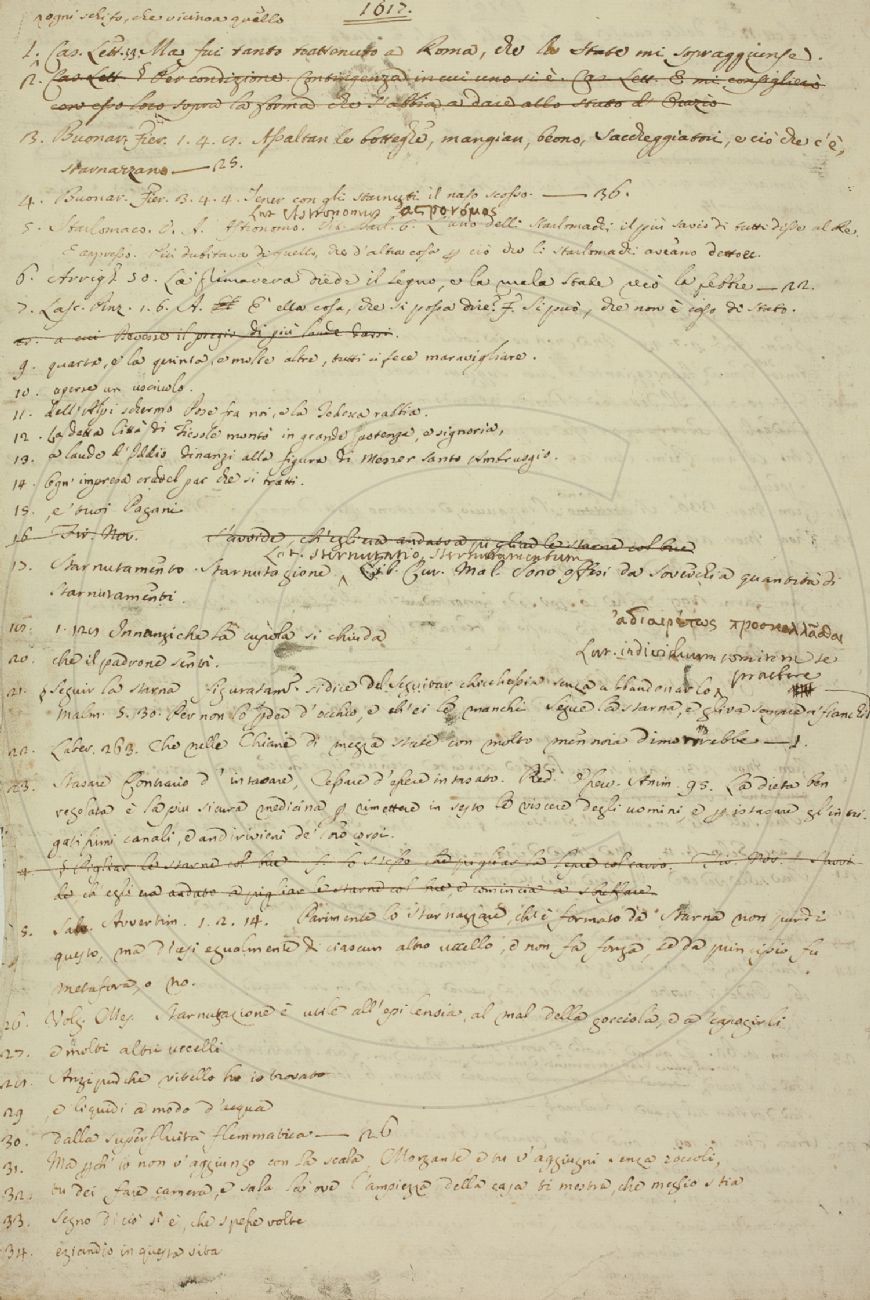 1617.
ogni schifo, che vicino a quello
1. Cas. Lett. 33. Ma fui tanto trattenuto a Roma, che la State mi sopraggiunse.
2. Cas. Lett. § Per condizione. Contingenza in cui uno si è. Cas. Lett. E mi consiglierò
con esso loco sopra la forma che s'abbia a dare allo stato d'Orazio
3. Buonar. Fier. 1. 4. Assaltan le botteghe, mangian, beono, Saccheggiatori, e ciò che c'è,
starnazzano — 25.
4. Buonar. Fier. 3. 4. 4. Tener con gli starnuti il naso scosso. — 36.
Lat. Astronomus, ἀστρονόμος
5. Starlomaco. V. A. Astronomo. L'uno delli starlomachi il più savio di tutti disse al Re.
E appresso. Più dubitava di quello, che d'altra cosa p ciò che li starlomachi aveano detto
6. Arrigh. 50. La Primavera diede il legno, e la mala State recò la febbre — 22.
7. Lasc. Pinz. 1. 6. A. E' ella cosa, che si possa dire? F. Si può, che non è caso di Stato.
a cui Avesse il pregio di più laude darsi.
9. quarta, e la quinta, e molte altre, tutti si fece maravigliare.
10. aperse un usciuolo.
11. dell'Alpi schermo Pose fra noi, e la Tedesca rabbia.
12. La detta Città di Fiesole montò in grande potenza, e signoria,
13. a laude d'Iddio dinanzi alla figura di Messer Santo Ambruogio.
14. Ogn' impresa crudel par che si tratti.
15. e' buoi Pagani
16. Fir. Nov. s'avvide, ch'egli era andato a pigliar le starne col bue
Lat. sternutatio, sternutamentum
17. Starnutamento. Starnutazione. Lib. Cur. Mal. Sono offesi da soverchia quantità di
starnutamenti.
ἀδιαιρέτως προσκολλᾶσθαι
Innanzi che la cupola si chiuda
Lat. individuum comitem se
20. che il padrone senti.
praebere
21. § Seguir la starna figuratam. si dice del Seguitar chicchessia senza abbandonarlo
Malm. 5. 30. Per non lo perder d'occhio, e ch'ei le manchi Segue la starna, e gli va sempre a' fianchi
22. Laber. 263. Che nelle Chiane di mezza state con molto men noia dimorrebbe — 1.
23. Stasare Contrario d'intasare, Cessare d'essere intasato. Red. Esper. Anim. 95. La dieta ben
regolata è la più sicura medicina p rimettere in sesto le viscere degli uomini, e p istasare gl'intri-
gatissimi canali, e andirivieni de' loro corpi.
§ Pigliar le starne col bue lo stesso che pigliar la lepre col carro. Fir. Nov. S'avvi-
de ch'egli era andato a pigliar le starne col bue e comincia a sbuffare
Salv. Avvertim. 1. 2. 14. Parimente lo starnazzare, ch'è formato da Starna non pur di
questo, ma dicesi egualmente di ciascun altro uccello, e non fa forza, se da principio fu
metafora, o no.
26. Volg. Mes. Starnutazione è utile all'epilensia, al mal della gocciola, e a' capogirli
27. e molti altri uccelli
Anzi perchè vitello ho io trovato
29 e liquidi a modo d'acqua
30. dalla superfluità flemmatica — 26
31. Ma perch' io non v'aggiungo con la scala Morgante e tu v'aggiugni senza zoccoli,
32. tu dei fare camera, e sala là ove l'ampiezza della casa ti mostra, che meglio stia
33. Segno di ciò si è, che spesse volte
34. eziandio in questa vita